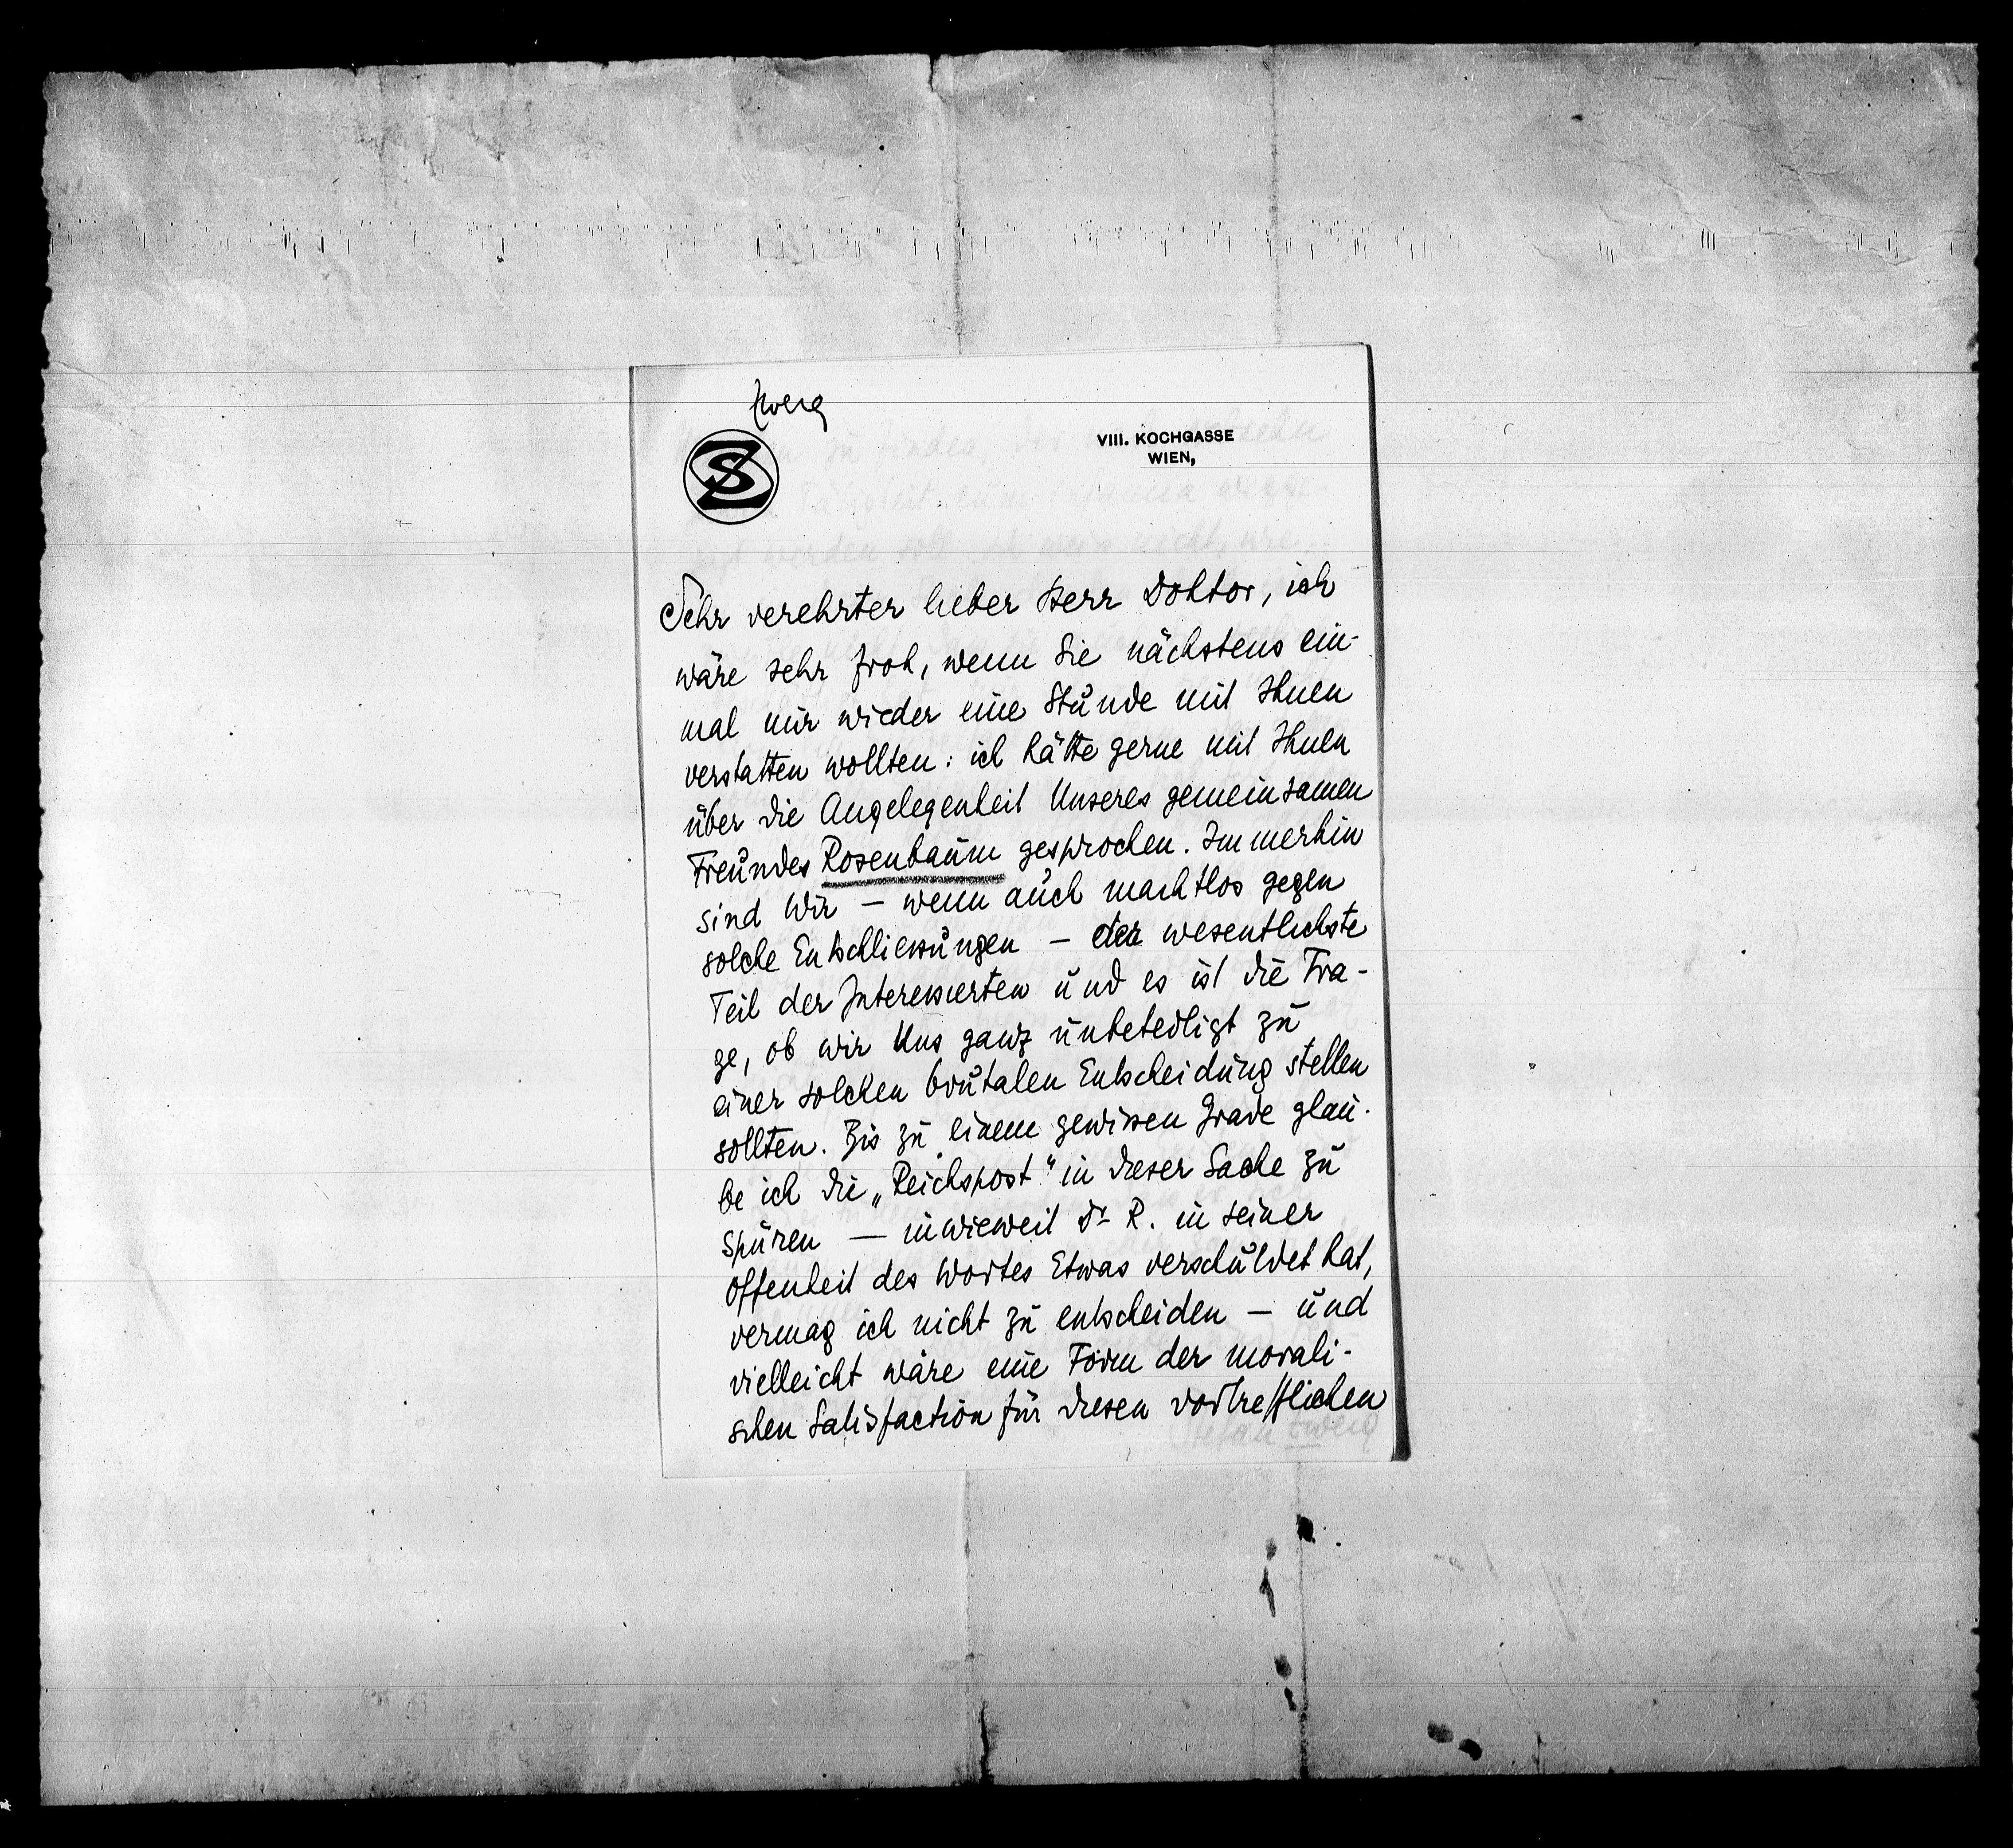 Zweig
SZ
VIII. KOCHGASSE
WIEN,
Sehr verehrter lieber Herr Doktor, ich
wäre sehr froh, wenn Sie nächstens ein-
mal mir wieder eine Stunde mit Ihnen
verstatten wollten: ich hätte gerne mit Ihnen
über die Angelegenheit Unseres gemeinsamen
Freundes Rosenbaum gesprochen. Immerhin
sind Wir – wenn auch machtlos gegen
solche Entschliessungen – der wesentlichste
Teil der Interessierten und es ist die Fra-
ge, ob wir Uns ganz unbeteiligt zu
einer solchen brutalen Entscheidung stellen
sollten. Bis zu einem gewissen Grade glau-
be ich die „Reichspost" in dieser Sache zu
spüren — inwieweit Dr R. in seiner
Offenheit des Wortes Etwas verschuldet hat,
vermag ich nicht zu entscheiden – und
vielleicht wäre eine Form der morali-
schen Satisfaction für diesen vortrefflichen